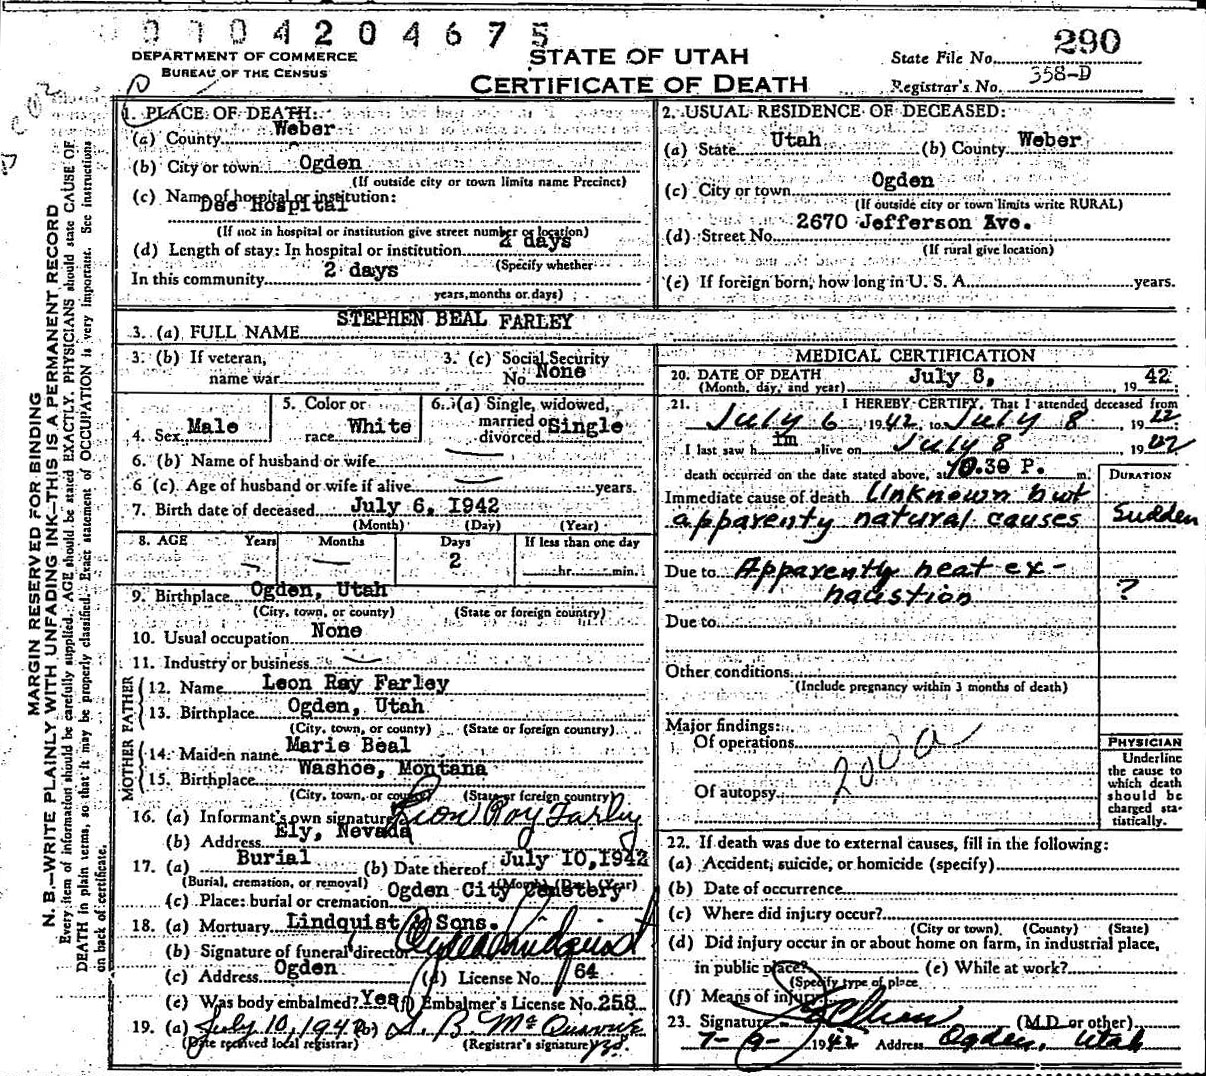 0704204675
DEPARTMENT OF COMMERCE
BUREAU OF THE CENSUS
STATE OF UTAH
CERTIFICATE OF DEATH
State File No. 290
Registrar's No. 358-D
MARGIN RESERVED FOR BINDING
N. B.—WRITE PLAINLY WITH UNFADING INK—THIS IS A PERMANENT RECORD
Every item of information should be carefully supplied. AGE should be stated EXACTLY. PHYSICIANS should state CAUSE OF
DEATH in plain terms, so that it may be properly classified. Exact statement of OCCUPATION is very important. See instructions
on back of certificate.
1. PLACE OF DEATH:
(a) County Weber
(b) City or town Ogden
(If outside city or town limits name Precinct)
(c) Name of hospital or institution:
Dee Hospital
(If not in hospital or institution give street number or location)
(d) Length of stay: In hospital or institution 2 days
(Specify whether
In this community 2 days
years, months or days)
2. USUAL RESIDENCE OF DECEASED:
(a) State Utah (b) County Weber
(c) City or town Ogden
(If outside city or town limits write RURAL)
(d) Street No. 2670 Jefferson Ave.
(If rural give location)
(e) If foreign born, how long in U. S. A. years.
3. (a) FULL NAME STEPHEN BEAL FARLEY
3. (b) If veteran, name war
3. (c) Social Security No. None
4. Sex Male
5. Color or race White
6. (a) Single, widowed, married or divorced Single
6. (b) Name of husband or wife
6 (c). Age of husband or wife if alive years.
7. Birth date of deceased July 6, 1942
(Month) (Day) (Year)
8. AGE Years Months Days If less than one day
2 hr. min.
9. Birthplace Ogden, Utah
(City, town, or county) (State or foreign country)
10. Usual occupation None
11. Industry or business
FATHER
12. Name Leon Ray Farley
13. Birthplace Ogden, Utah
(City, town, or county) (State or foreign country)
MOTHER
14. Maiden name Marie Beal
15. Birthplace Washoe, Montana
(City, town, or county) (State or foreign country)
16. (a) Informant's own signature Leon Ray Farley
(b) Address Ely, Nevada
17. (a) Burial (b) Date thereof July 10, 1942
(Burial, cremation, or removal) (Month) (Day) (Year)
(c) Place: burial or cremation Ogden City Cemetery
18. (a) Mortuary Lindquist & Sons.
(b) Signature of funeral director Lindquist
(c) Address Ogden (d) License No. 64
(e) Was body embalmed? Yes (f) Embalmer's License No. 258
19. (a) July 10, 1942 (b)
(Date received local registrar) (Registrar's signature)
MEDICAL CERTIFICATION
20. DATE OF DEATH July 8, 1942
(Month, day, and year)
21. I HEREBY CERTIFY, That I attended deceased from
July 6 1942, to July 8 1942
I last saw him alive on July 8 1942
death occurred on the date stated above, at 10.30 P. m.
DURATION
Immediate cause of death Unknown but
apparenty natural causes Sudden
Due to Apparently heat ex-
haustion ?
Due to
Other conditions
(Include pregnancy within 3 months of death)
Major findings:
Of operations
200a
Of autopsy
PHYSICIAN
Underline
the cause to
which death
should be
charged sta-
tistically.
22. If death was due to external causes, fill in the following:
(a) Accident, suicide, or homicide (specify)
(b) Date of occurrence
(c) Where did injury occur?
(City or town) (County) (State)
(d) Did injury occur in or about home on farm, in industrial place,
in public place? (e) While at work?
(Specify type of place
(f) Means of injury
23. Signature (M.D. or other)
7-9- 1942 Address Ogden, Utah